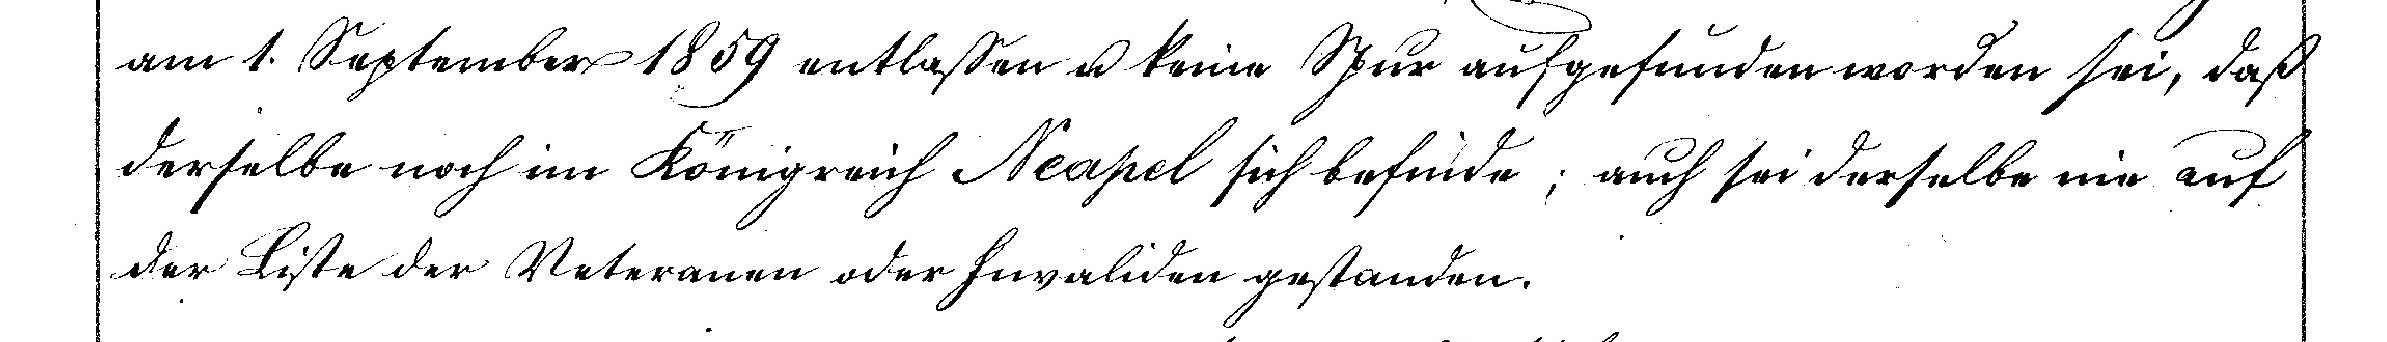 am 1. September 1859 entlaßen u keine Spur aufgefunden worden sei, daß
derselbe noch im Königreich Neapel sich befinde; auch sei derselbe nie auf
der Liste der Veteranen oder Invaliden gestanden.